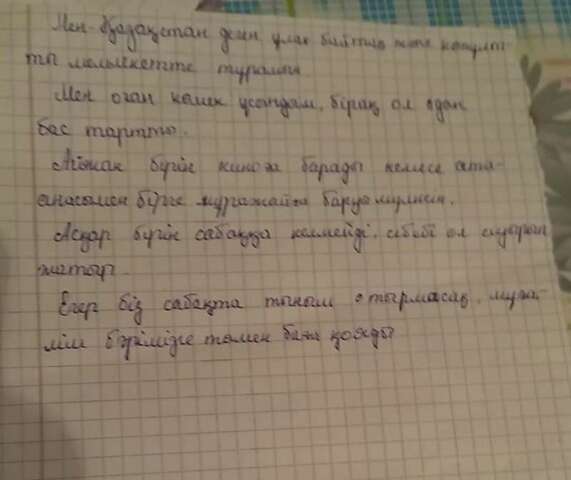 Мен Қазақстан деген ұлан байтақ және
ты мемлекетте тұрамын.
Мен оған көмек ұсындам, бірақ ол одан
бас тартты.
бүгін киноға барады немесе ата-
анасымен бірге мұражайға баруы мүмкін.
Асқар бүгін сабаққа келмейді, себебі ол ауырып
жатыр.
Егер біз сабақта тыныш отырмасақ, мұға-
лім бәрімізге төмен баға қояды